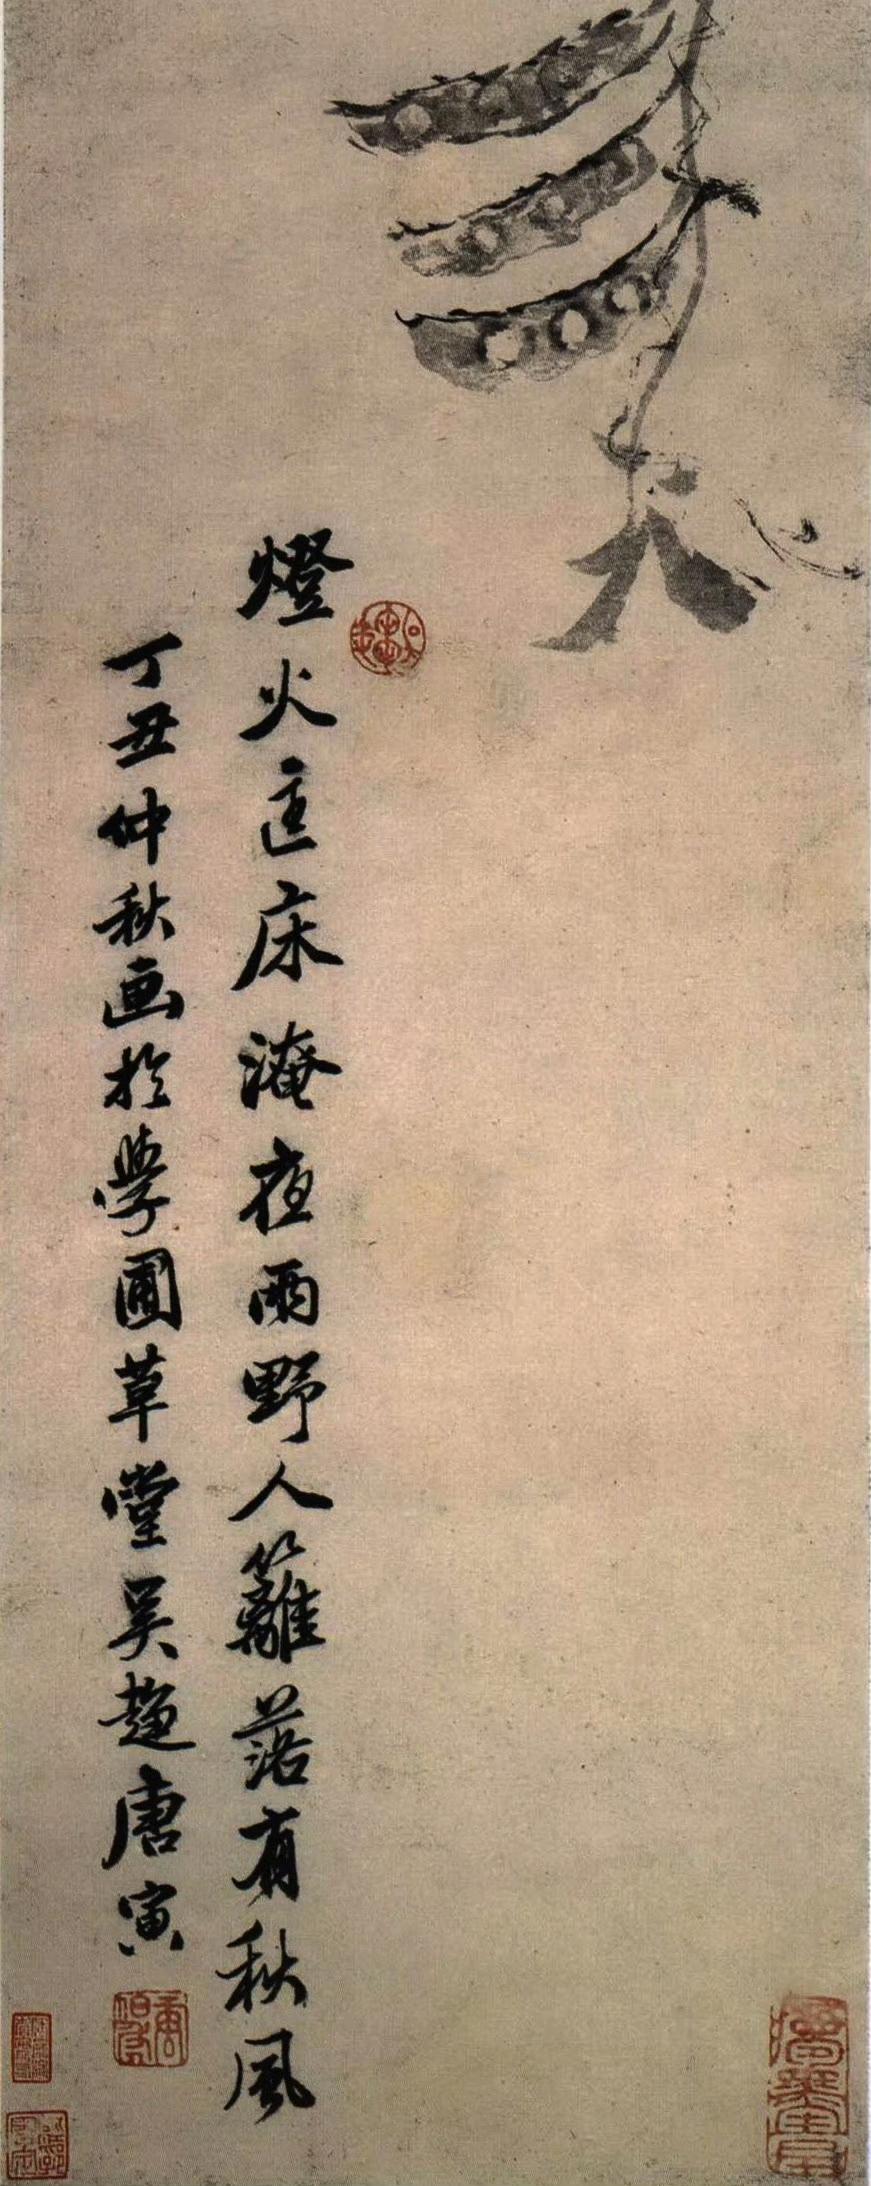 燈火匡床淹夜雨野人籬落有秋風
丁丑仲秋画於學圃草堂吴趨唐寅